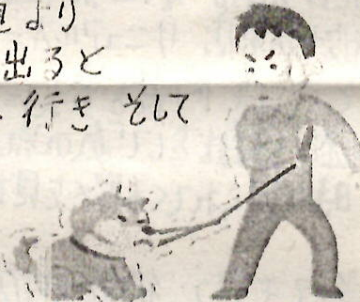 より
出ると
行き そして